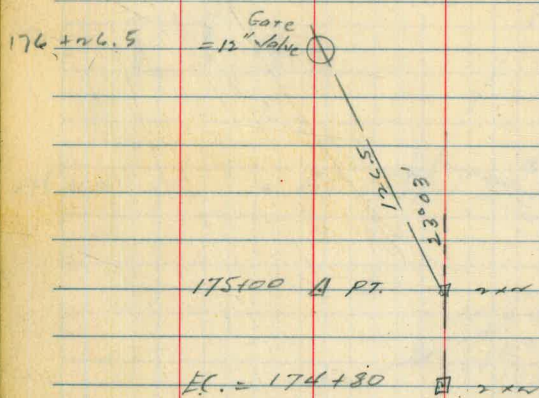 Gate
176+26.5 = 12" Valve
126.5
23°03'
175+00 △ PT. 2x2
E.C. = 174+80 2x2